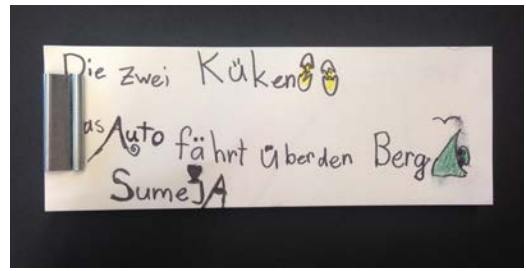 Die zwei Küken
as Auto fährt überden Berg
SumeJA